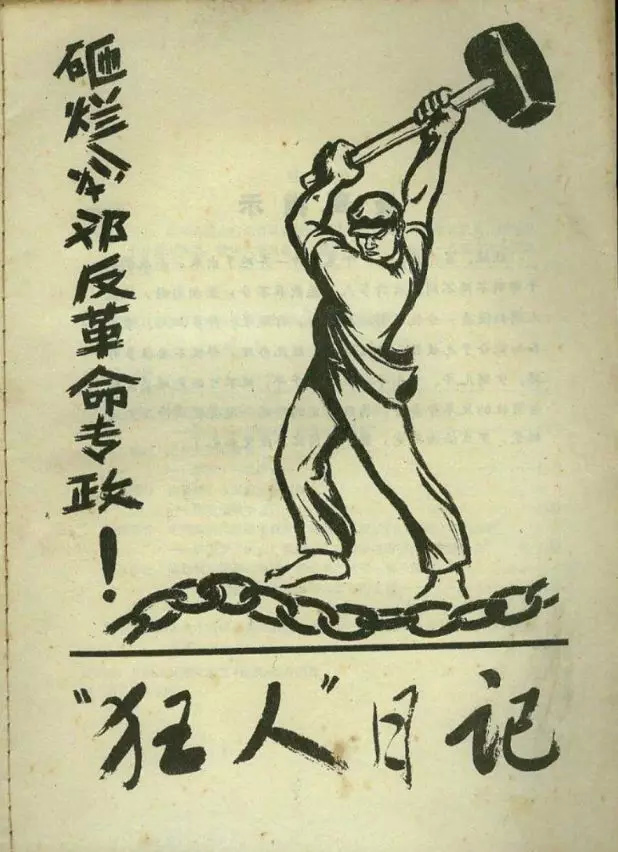 砸烂刘邓反革命专政！
“狂人”日记